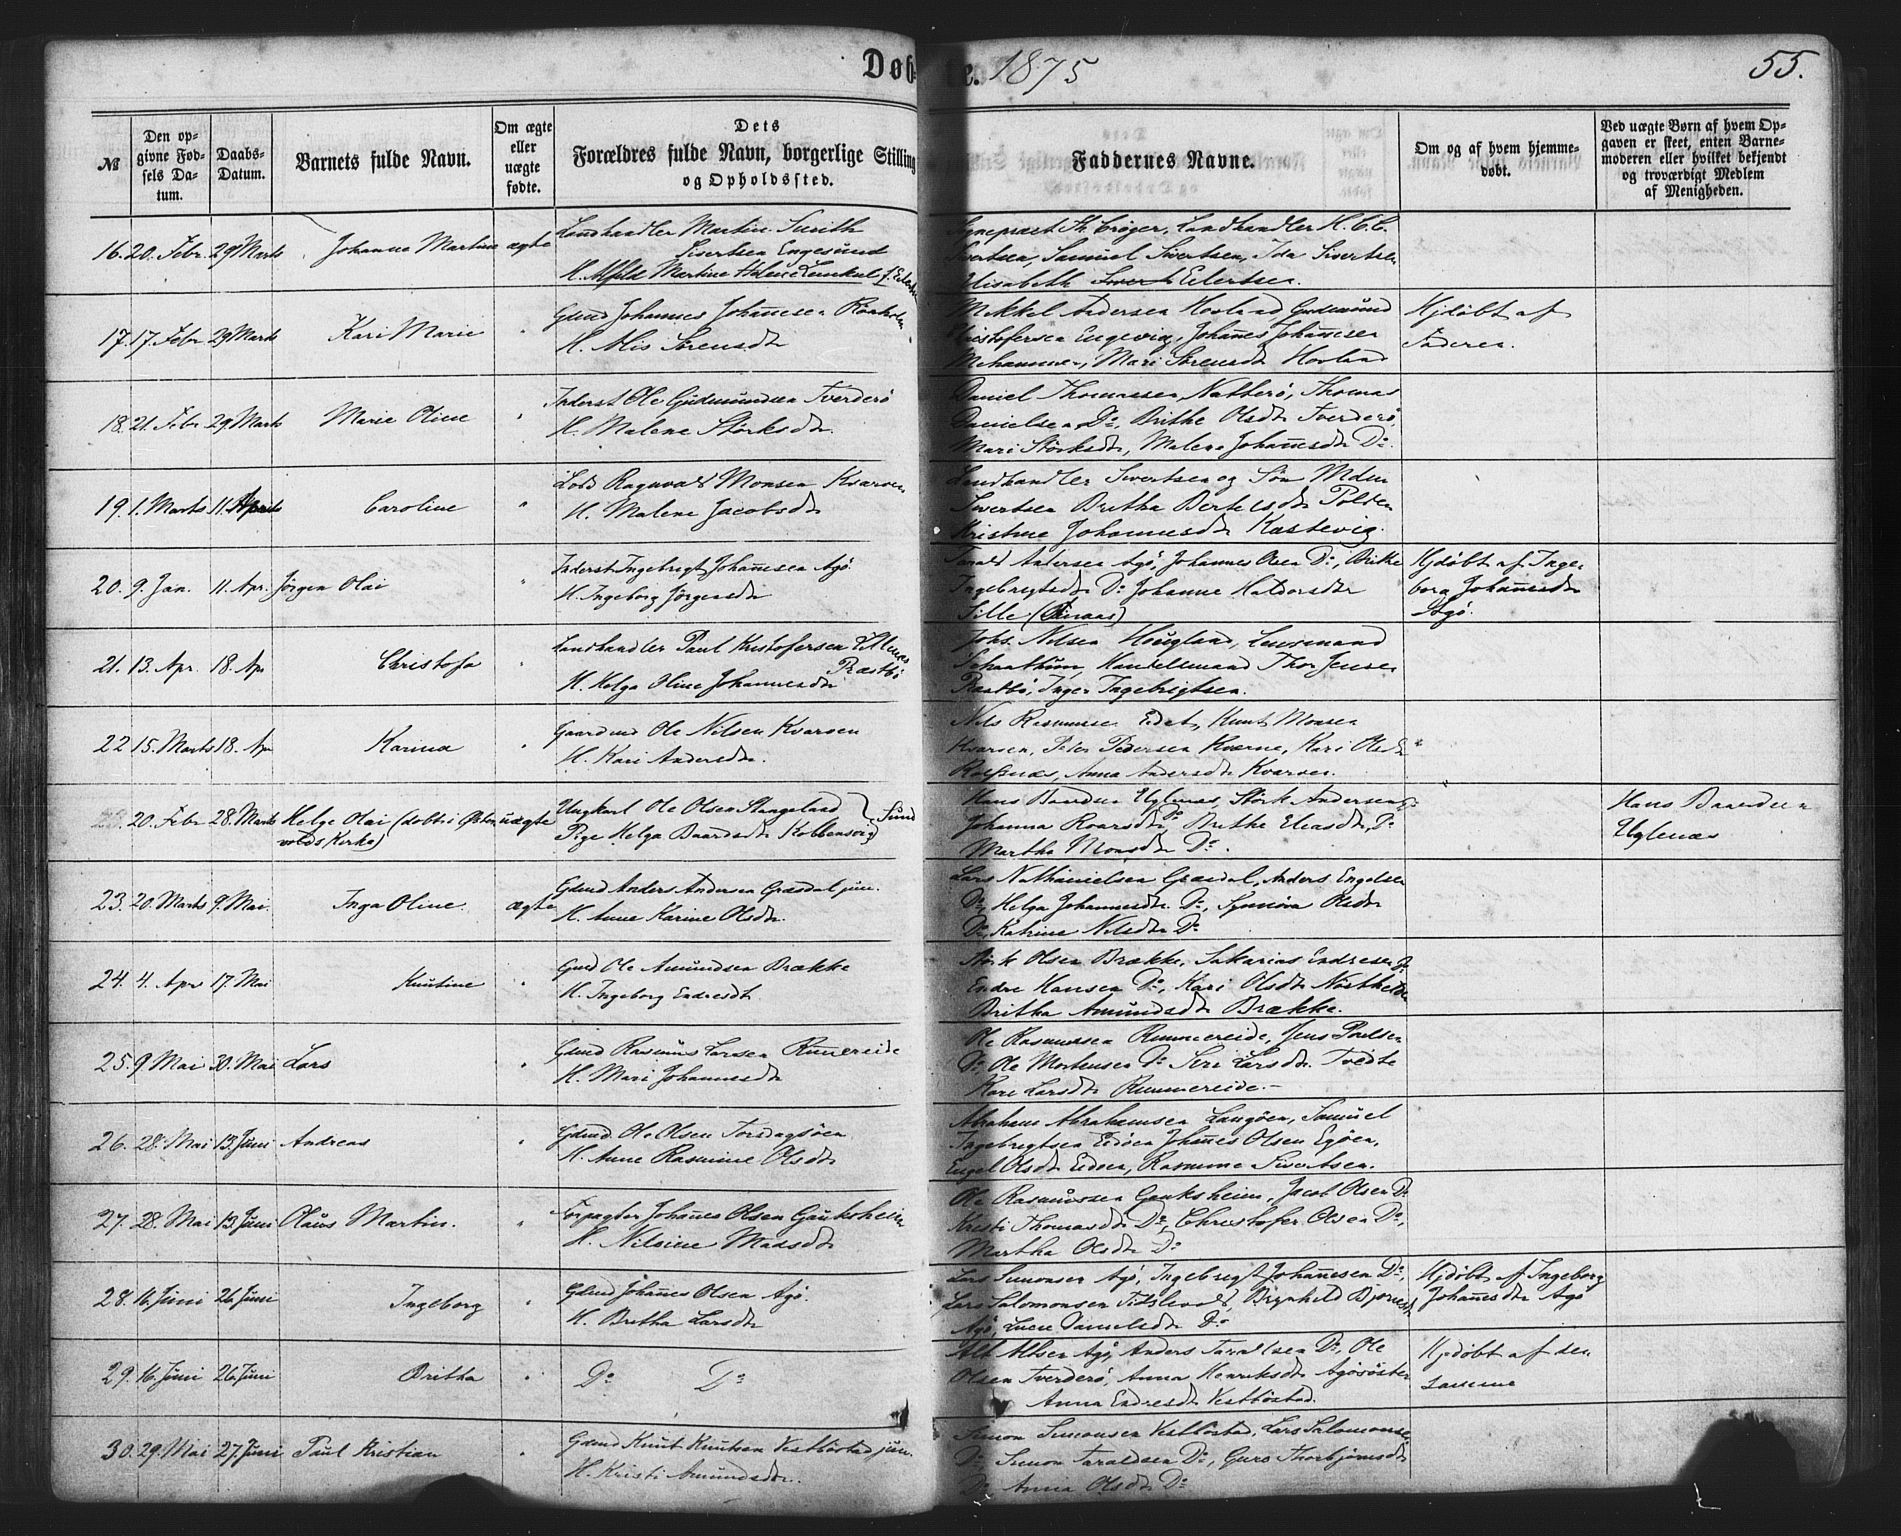 Døbte. 1875
55.
№
Den opgivne Fødsels Datum.
Daabs-Datum.
Barnets fulde Navn.
Om ægte eller uægte fødte.
Dets Forældres fulde Navn, borgerlige Stilling og Opholdssted.
Faddernes Navne.
Om og af hvem hjemmedøbt.
Ved uægte Børn af hvem Opgaven er skeet, enten Barnemoderen eller hvilket bekjendt og troværdigt Medlem af Menigheden.
16. 20. Febr. 29 Marts Johanna Martine ægte
Landhandler Martin Smith
Sivertsen Engesund
H. Martine Helene Lemkul f. Eilertsen
Sognepræst Th. Crøger, Landhandler H. C. C.
Sivertsen, Samuel Sivertsen, Ida Sivertsen
Elisabeth Eilertsen.
17. 17. Febr 29 Marts Kari Marie "
Gdmd Johannes Johannesen
H. Alis Sørensdtr
Mikkel Andersen Hovland Gudmund
Christofersen Engevig, Johannes Johannesen
Mehammer, Mari Sørensdt Hovland
Hjdøbt af
Faderen.
18. 21. Febr 29 Marts Marie Oline "
Inderst Ole Gudmundsen Tverderø
H. Malene Størksdtr.
Daniel Thomassen Natterø, Thomas
Danielsen Do, Brithe Olsdtr Tverderø,
Mari Størksdtr, Malene Johannesdtr Do.
19. 1. Marts 11. April Caroline "
Lods Ragnvald Monsen Kvarven
H. Malene Jacobsdtr
Landhandler Sivertsen og Søn Mdm
Sivertsen Britha Bertelsdtr Polden
Kristine Johannesdtr Kastevig.
20. 9. Jan. 11. Apr. Jørgen Olai "
Inderst Ingebrigt Johannesen Agø.
H. Ingeborg Jørgensdtr
Tarald Andersen Agø, Johannes Olsen Do, Brithe
Ingebrigtsdtr Do Johanne Haldorsdtr
Sille
Hjdøbt af Inge-
borg Johannesdtr
Agø.
21. 13. Apr. 18. Ap Christofa "
Landhandler Paul Kristofersen Littlenæs
Præstbø
H. Helga Oline Johannesdtr
Johs. Nilsen Hougland, Lensmand
Johanthum, Handelsmand Thor Jensen
Præstbø, Inger Ingebrigtsen.
22 15. Marts 18. Ap Karina "
Gaardmd Ole Nilsen Kvarven
H. Kari Andersdtr.
Nils Rasmussen Eidet, Knut Monsen
Kvarven, Peter Pedersen Kverne, Kari Olsdtr
Rolfsnæs, Anna Andersdtr Kvarven.
20. Febr 28. Marts Helge Olai (døbt i Østen- uægte
volds Kirke)
Ungkarl Ole Olsen Stangeland
Pige Helga Baardsdtr Kolbensvig } Sund
Hans Baardsen Uglenæs, Størk Andersen Do
Johanna Roarsdtr Do Brithe Eliasdtr, Do
Martha Monsdtr Do.
Hans Baardsen
Uglenæs
23. 20. Marts 9. Mai. Inga Oline. ægte
Gdmd Anders Andersen Græsdal jun.
H. Anne Karine Olsdtr.
Lars Nathanielsen Græsdal, Anders Engelsen
Do, Helga Johannesdtr Do, Synnøva Olsdtr
Do, Katrine Nilsdtr Do
24. 4. Apr 17. Mai Knutine "
Gmd Ole Amundsen Brække
H. Ingeborg Endresdt.
Størk Olsen Brække, Sakarias Endresen Do
Endre Hansen Do, Kari Olsdtr
Britha Amundsdtr Brække.
25. 9 Mai 30. Mai Lars "
Gdmd Rasmus Larsen Rimmereide
H. Mari Johannesdtr
Ole Rasmussen Rimmereide, Jens Poulsen
Do, Ole Mortensen Do Siri Larsdtr. Tvedte
Kari Larsdtr Rimmereide.-
26. 28. Mai 13. Juni Andreas "
Gdmd. Ole Olsen Torsdagsøen
H. Anne Rasmine Olsdtr
Abraham Abrahamsen Langøen, Samuel
Ingebrigtsen Eidøen Johannes Olsen Egøen,
Engel Olsdtr Eidøen, Rasmine Sivertsen.
27. 28. Mai 13. Juni Olaus Martin. "
Forpagter Johannes Olsen Gauksheim
H. Nilsine Madsdtr
Ole Rasmussen Gauksheim, Jacob Olsen Do
Kristi Thomasdtr Do, Christofer Olsen Do,
Martha Olsdtr Do
28. 16. Juni 26. Juni Ingeborg "
Gdmd Johannes Olsen Agø.
H. Britha Larsdtr
Lars Simonsen Agø, Ingebrigt Johannesen Do,
Lars Salomonsen Fitslevold, Brynhild Bjørnsdt
Agø, Lucie Danielsdtr Do
Hjdøbt af Ingeborg
Johannesdtr Agø
29. 16. Juni 26. Juni Britha "
Do Do
Alb Albsen Agø, Anders Taraldsen Do, Ole
Olsen Tverderø, Anna Henriksdt Agøsøster
Anna Endresdt Vestbøstad.
Hjdøbt af den
samme
30. 29. Mai 27. Juni Paul Kristian "
Gdmd Knut Knutsen Vestbøstad jun.
H. Kristi Amundsdtr.
Simon Simonsen Vestbøstad, Lars Salomonsen
Do, Simon Taraldsen Do, Guro Thorbjørnsdtr
Do, Anna Olsdtr Do